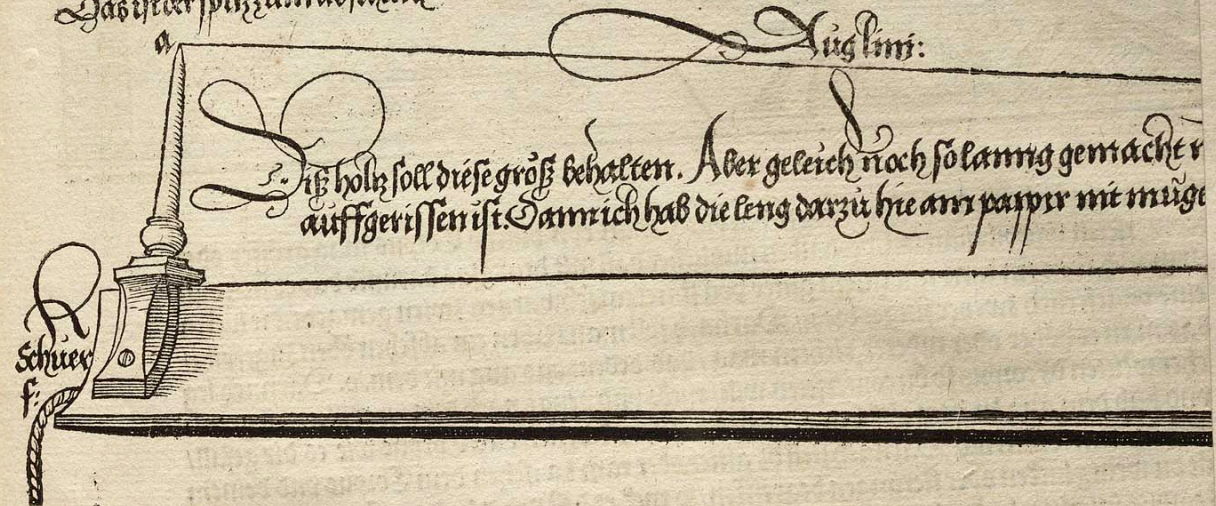 Das ist der spitz zum absehen
a
Auglini:
Diß holtz soll diese größ behalten. Aber geleich noch so lanng gemacht
auffgerissen ist. Dann ich hab die leng darzu hie am pappir nit müge
Schuer
f: